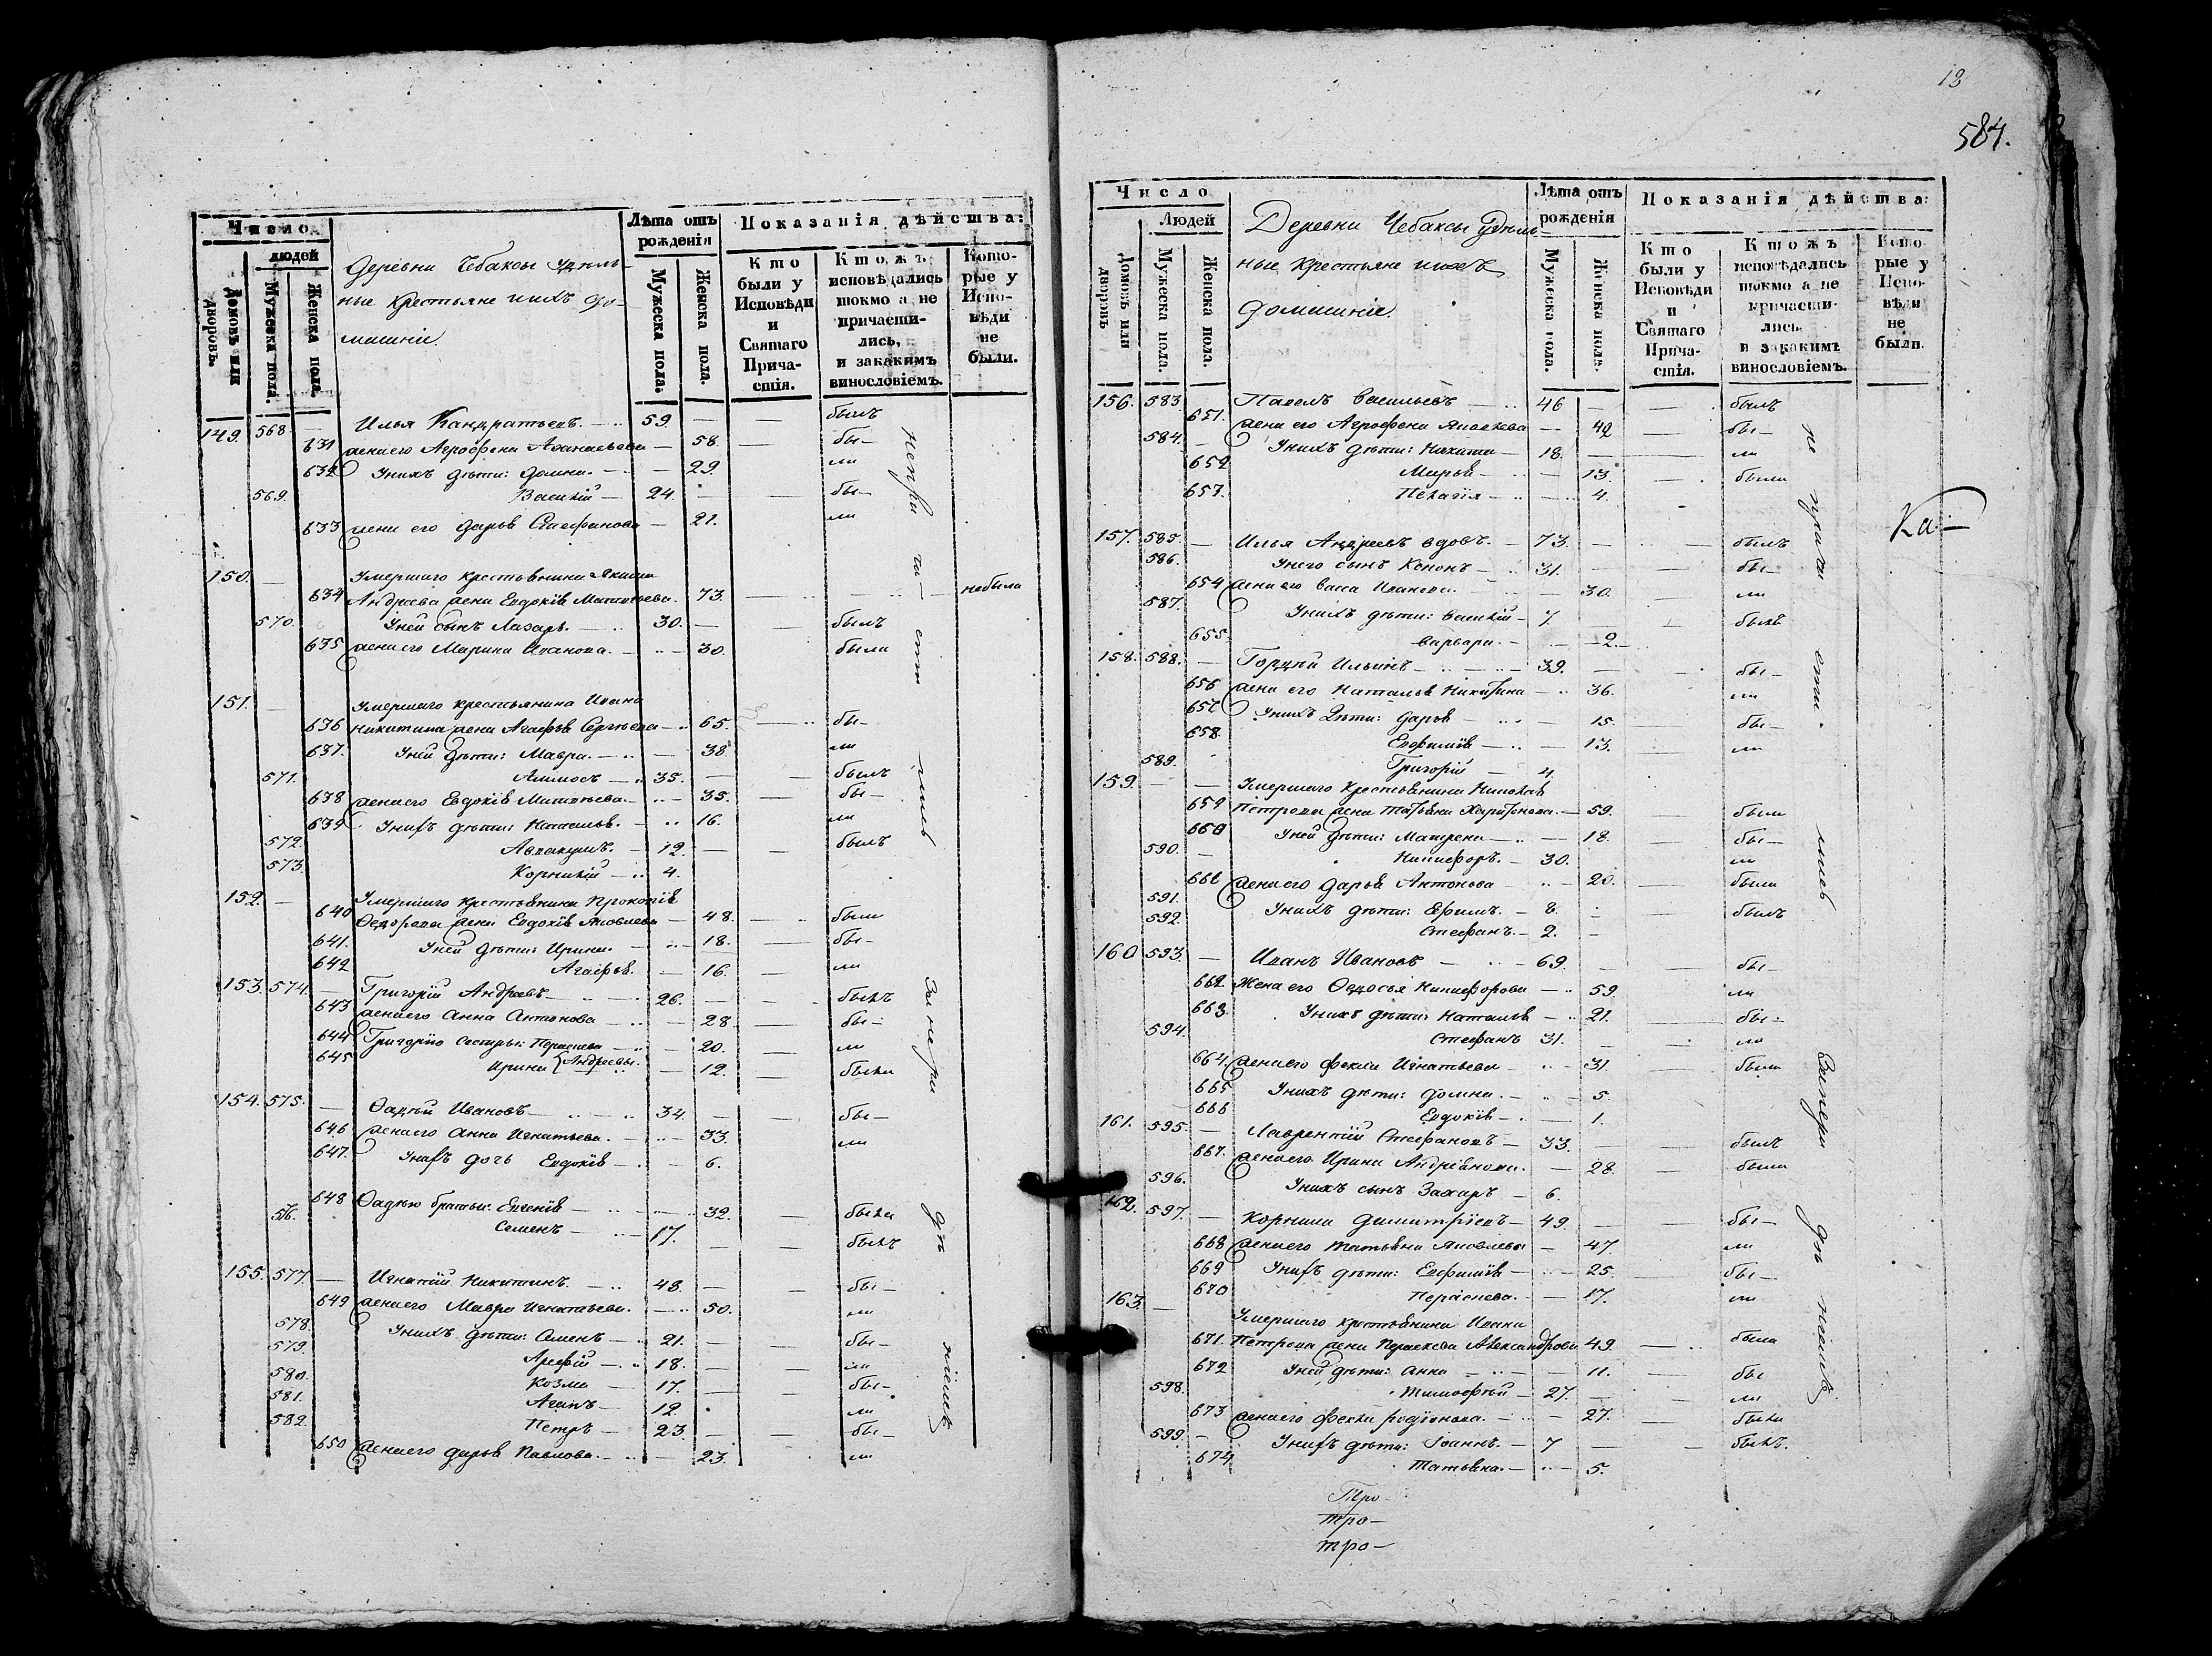 Число
людей
Домовъ или дворовъ.
Мужеска пола.
Женска пола.
Деревни Чебаксы удѣль-
ные крестьяне ихъ до-
машніе.
Лѣта отъ рожденія
Мужеска пола.
Женска пола.
Показанія дѣйства:
Кто были у Исповѣди и Святаго Прича-стія.
Ктожъ исповѣдались токмо а не причасти-лись, и закакимъ винословіемъ.
Кото-рые у Испо-вѣди не были.
149. 568 — Илья Кандратьевъ. 59. — — былъ
631 жена его Агрофена Афанасьева — 58. — бы-
632 Унихъ дѣти: Домна. — 29. ли
569. Василій — 24. — — бы-
633 жена его Дарья Стефанова — 21. ли
150. — Умершаго крестьянина Якима
634 Андреева жена Евдокія Матвѣева. 73. — небыла
570. Уней сынъ Лазарь. — 30. — — былъ
635 жена его Марина Иванова. — 30. была
151. — Умершаго крестьянина Ивана
636 Никитина жена Агафья Сергѣева — 65. — бы-
637. Уней дѣти: Мавра. — — 38. ли
571. Аммосъ — 35. — — былъ
638 жена его Евдокія Матвѣева. — 35. — бы-
639 Унихъ дѣти: Наталья. — 16. ли
572. Аввакумъ. — 12. — — былъ
573. Корнилій — 4.
152. — Умершаго крестьянина Прокопія
640 Ѳедорова жена Евдокія Яковлева — 48. — была
641. Уней дѣти: Ирина. — 18. — бы-
642 Агафья. — 16. — ли
153. 574. — Григорій Андреевъ — 26. — — былъ
643 жена его Анна Антонова — 28 — бы-
644 Григорію сестры: Параскева — 20. — ли
645 Ирина {Андреевы. — 12. — была
154. 575. — Ѳадѣй Ивановъ — 34. — — бы-
646 жена его Анна Игнатьева. — 33. ли
647. Унихъ дочь Евдокія — 6.
648 Ѳадѣю братья: Евгенія — 32. — была
576. Семенъ — 17. — — былъ
155. 577. — Игнатій Никитинъ. — 48. — — бы-
649 жена его Мавра Игнатьева. — 50. ли
578. Унихъ дѣти: Семенъ — 21. — бы-
579. Арефій — 18. — — ли
580. Козма — 17. — — бы-
581. Агапъ — 12. ли
582. Петръ — 23. — — бы-
650 жена его Дарья Павлова. — 23. ли
непри ча- сти лись
Занера дѣ ніемъ
13
584.
Число
Людей
Домовъ или дворовъ
Мужеска пола.
Женска пола.
Деревни Чебаксы Удѣль-
ные крестьяне ихъ
домашніе.
Лѣта отъ рожденія
Мужеска пола.
Женска пола.
Показанія дѣйства:
Кто были у Исповѣди и Святаго Прича-стія.
Ктожъ исповѣдались токмо а не причасти-лись и закакимъ винословіемъ.
Кото-рые у Испо-вѣди не были.
156. 583. Павелъ Васильевъ — 46 — — былъ
651. жена его Агрофена Яковлева — 42 — бы-
584. — Унихъ дѣти: Никита — 18. — ли
652 Марья — 13. — была
653. Пелагія — 4.
157. 585. — Илья Андреевъ вдовъ. — 73. — — былъ
586. Унего сынъ Кононъ — 31. — — бы-
654 жена его Васса Иванова. — 30. — ли
587. Унихъ дѣти: Василій — 7. — былъ
655. Варвара. — 2. —
158. 588. — Гордей Ильинъ — 39. — бы-
656 жена его Наталья Никитина — 36. ли
657 Унихъ дѣти: Дарья — 15. — бы-
658. Евфимія — 13. — ли
589. Григорій — 4.
159. — — Умершаго крестьянина Николая
659 Петрова жена Татьяна Харитонова. — 59. — была
660 Уней дѣти: Матрена — 18. — бы-
590. — Никифоръ. — 30. ли
661 жена его Дарья Антонова — 20. — была
591. Унихъ дѣти: Ефимъ. — 8. — — былъ
592. Стефанъ. — 2. —
160 593. — Иванъ Ивановъ — 69. — — бы-
662. Жена его Ѳедосья Никифорова — 59. ли
663. Унихъ дѣти: Наталья — 21. — бы-
594. Стефанъ 31. — — ли
664. жена его Фекла Игнатьева — 31. — была
665 Унихъ дѣти: Домна. — 5.
666 Евдокія — 1.
161. 595. — Лаврентій Стефановъ — 33. — — былъ
667. жена его Ирина Андреянова. — 28. — была
596. Унихъ сынъ Захаръ — 6.
162. 597. — Корнила Димитріевъ — 49. — — бы-
668 жена его Татьяна Яковлева — 47. ли
669 Унихъ дѣти: Евфимія — 25. — бы-
670 Параскева. — 17. ли
163. — Умершаго крестьянина Ивана
671. Петрова жена Параскева Александрова 49. — была
672 Уней дѣти: Анна — 11. — бы
598. Тимофѣй — 27. — ли
673 жена его Фекла Родіонова. — 27. — была
599. — Унихъ дѣти: Іоаннъ. — 7 — — былъ.
674 Татьяна. — 5.
не прича сти- лись
Занера дѣ ніемъ
Ка-
Тро-
тро-
тро-